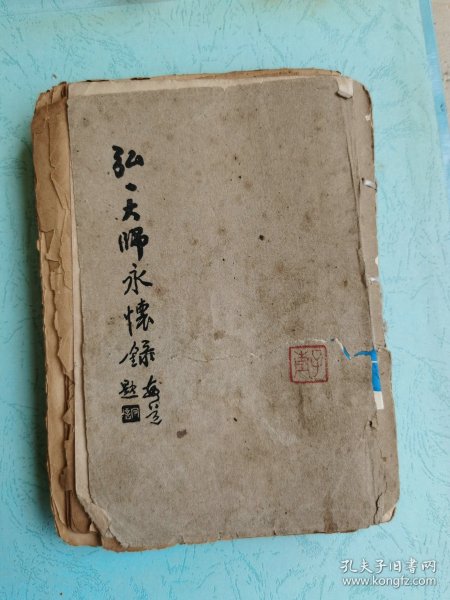 弘一大師永懷錄
題
孔夫子旧书网
www.kongfz.com